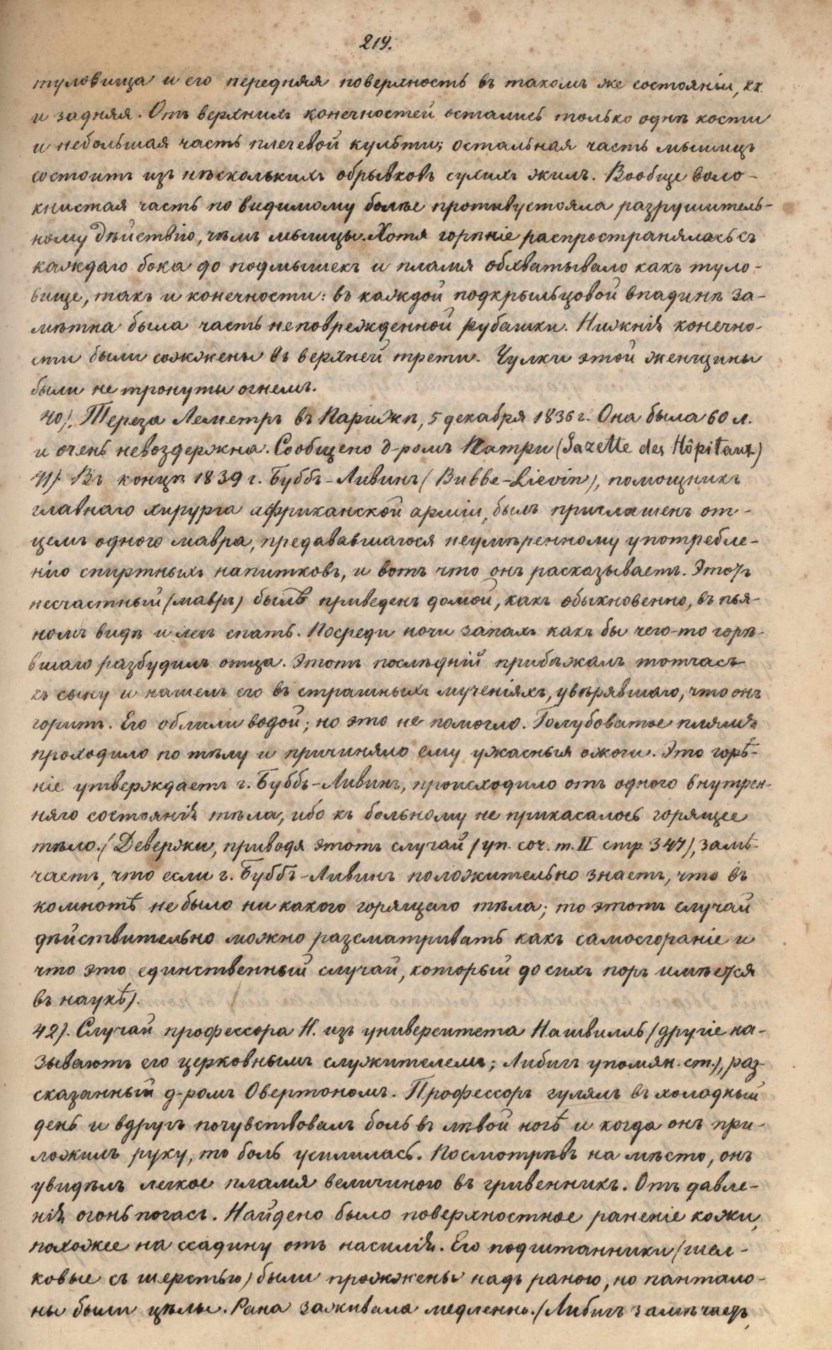 219.
туловища и его передняя поверхность въ такомъ же состояніи, какъ
и задняя. Отъ верхнихъ конечностей остались только однѣ кости
и небольшая часть плечевой культи; остальная часть мышцъ
состоитъ изъ нѣсколькихъ обрывковъ сухихъ жилъ. Вообще воло-
книстая часть по видимому болѣе противустояла разрушитель-
ному дѣйствію, чѣмъ мышцы. Хотя горѣніе распространялось съ
каждаго бока до подмышекъ и пламя обхватывало какъ туло-
вище, такъ и конечности: въ каждой подкрыльцовой впадинѣ за-
мѣтна была часть неповрежденной рубашки. Нижнія конечно-
сти были сожжены въ верхней трети. Чулки этой женщины
были не тронуты огнемъ.
40). Тереза Леметръ въ Парижѣ, 5 декабря 1836 г. Она была 60 л.
и очень невоздержна. Сообщено д-ромъ Патри (Gazette des Hôpitaux)
41) Въ концѣ 1839 г. Буббъ-Ливинъ (Bubbe-Lievin), помощникъ
главнаго хирурга африканской арміи, былъ приглашенъ от-
цемъ одного мавра, предававшагося неумѣренному употребле-
нію спиртныхъ напитковъ, и вотъ что онъ расказываетъ. Этотъ
несчастный (мавръ) былъ приведенъ домой, какъ обыкновенно, въ пья-
номъ видѣ и легъ спать. Посреди ночи запахъ какъ бы чего-то горѣ-
вшаго разбудилъ отца. Этотъ послѣдній прибѣжалъ тотчасъ
къ сыну и нашелъ его въ страшныхъ мученіяхъ, увѣрявшаго, что онъ
горитъ. Его облили водой; но это не помогло. Голубоватое пламя
проходило по тѣлу и причиняло ему ужасныя ожоги. Это горѣ-
ніе утверждаетъ г. Буббъ-Ливинъ, происходило отъ одного внутрен-
няго состоянія тѣла, ибо къ больному не прикасалось горящее
тѣло. (Девержи, приводя этотъ случай (уп. соч. т. II стр. 347), замѣ-
чаетъ, что если г. Буббъ-Ливинъ положительно знаетъ, что въ
комнотѣ не было никакого горящаго тѣла; то этотъ случай
дѣйствительно можно разсматривать какъ самосгораніе и
что это единственный случай, который до сихъ поръ имѣется
въ наукѣ).
42). Случай профессора Н. изъ университета Нашвилль (другіе на-
зываютъ его церковнымъ служителемъ; Либигъ упомян. ст.), раз-
сказанный д-ромъ Овертономъ. Профессоръ гулялъ въ холодный
день и вдругъ почувствовалъ боль въ лѣвой ногѣ и когда онъ при-
ложилъ руку, то боль усилилась. Посмотрѣвъ на мѣсто, онъ
увидѣлъ легкое пламя величиною въ гривенникъ. Отъ давле-
нія огонь погасъ. Найдено было поверхностное раненіе кожи,
похожее на ссадину отъ насилія. Его подштанники (шел-
ковые съ шерстью) были прожжены надъ раною, но пантало-
ны были цѣлы. Рана заживала медленно. (Либигъ замѣчаетъ,